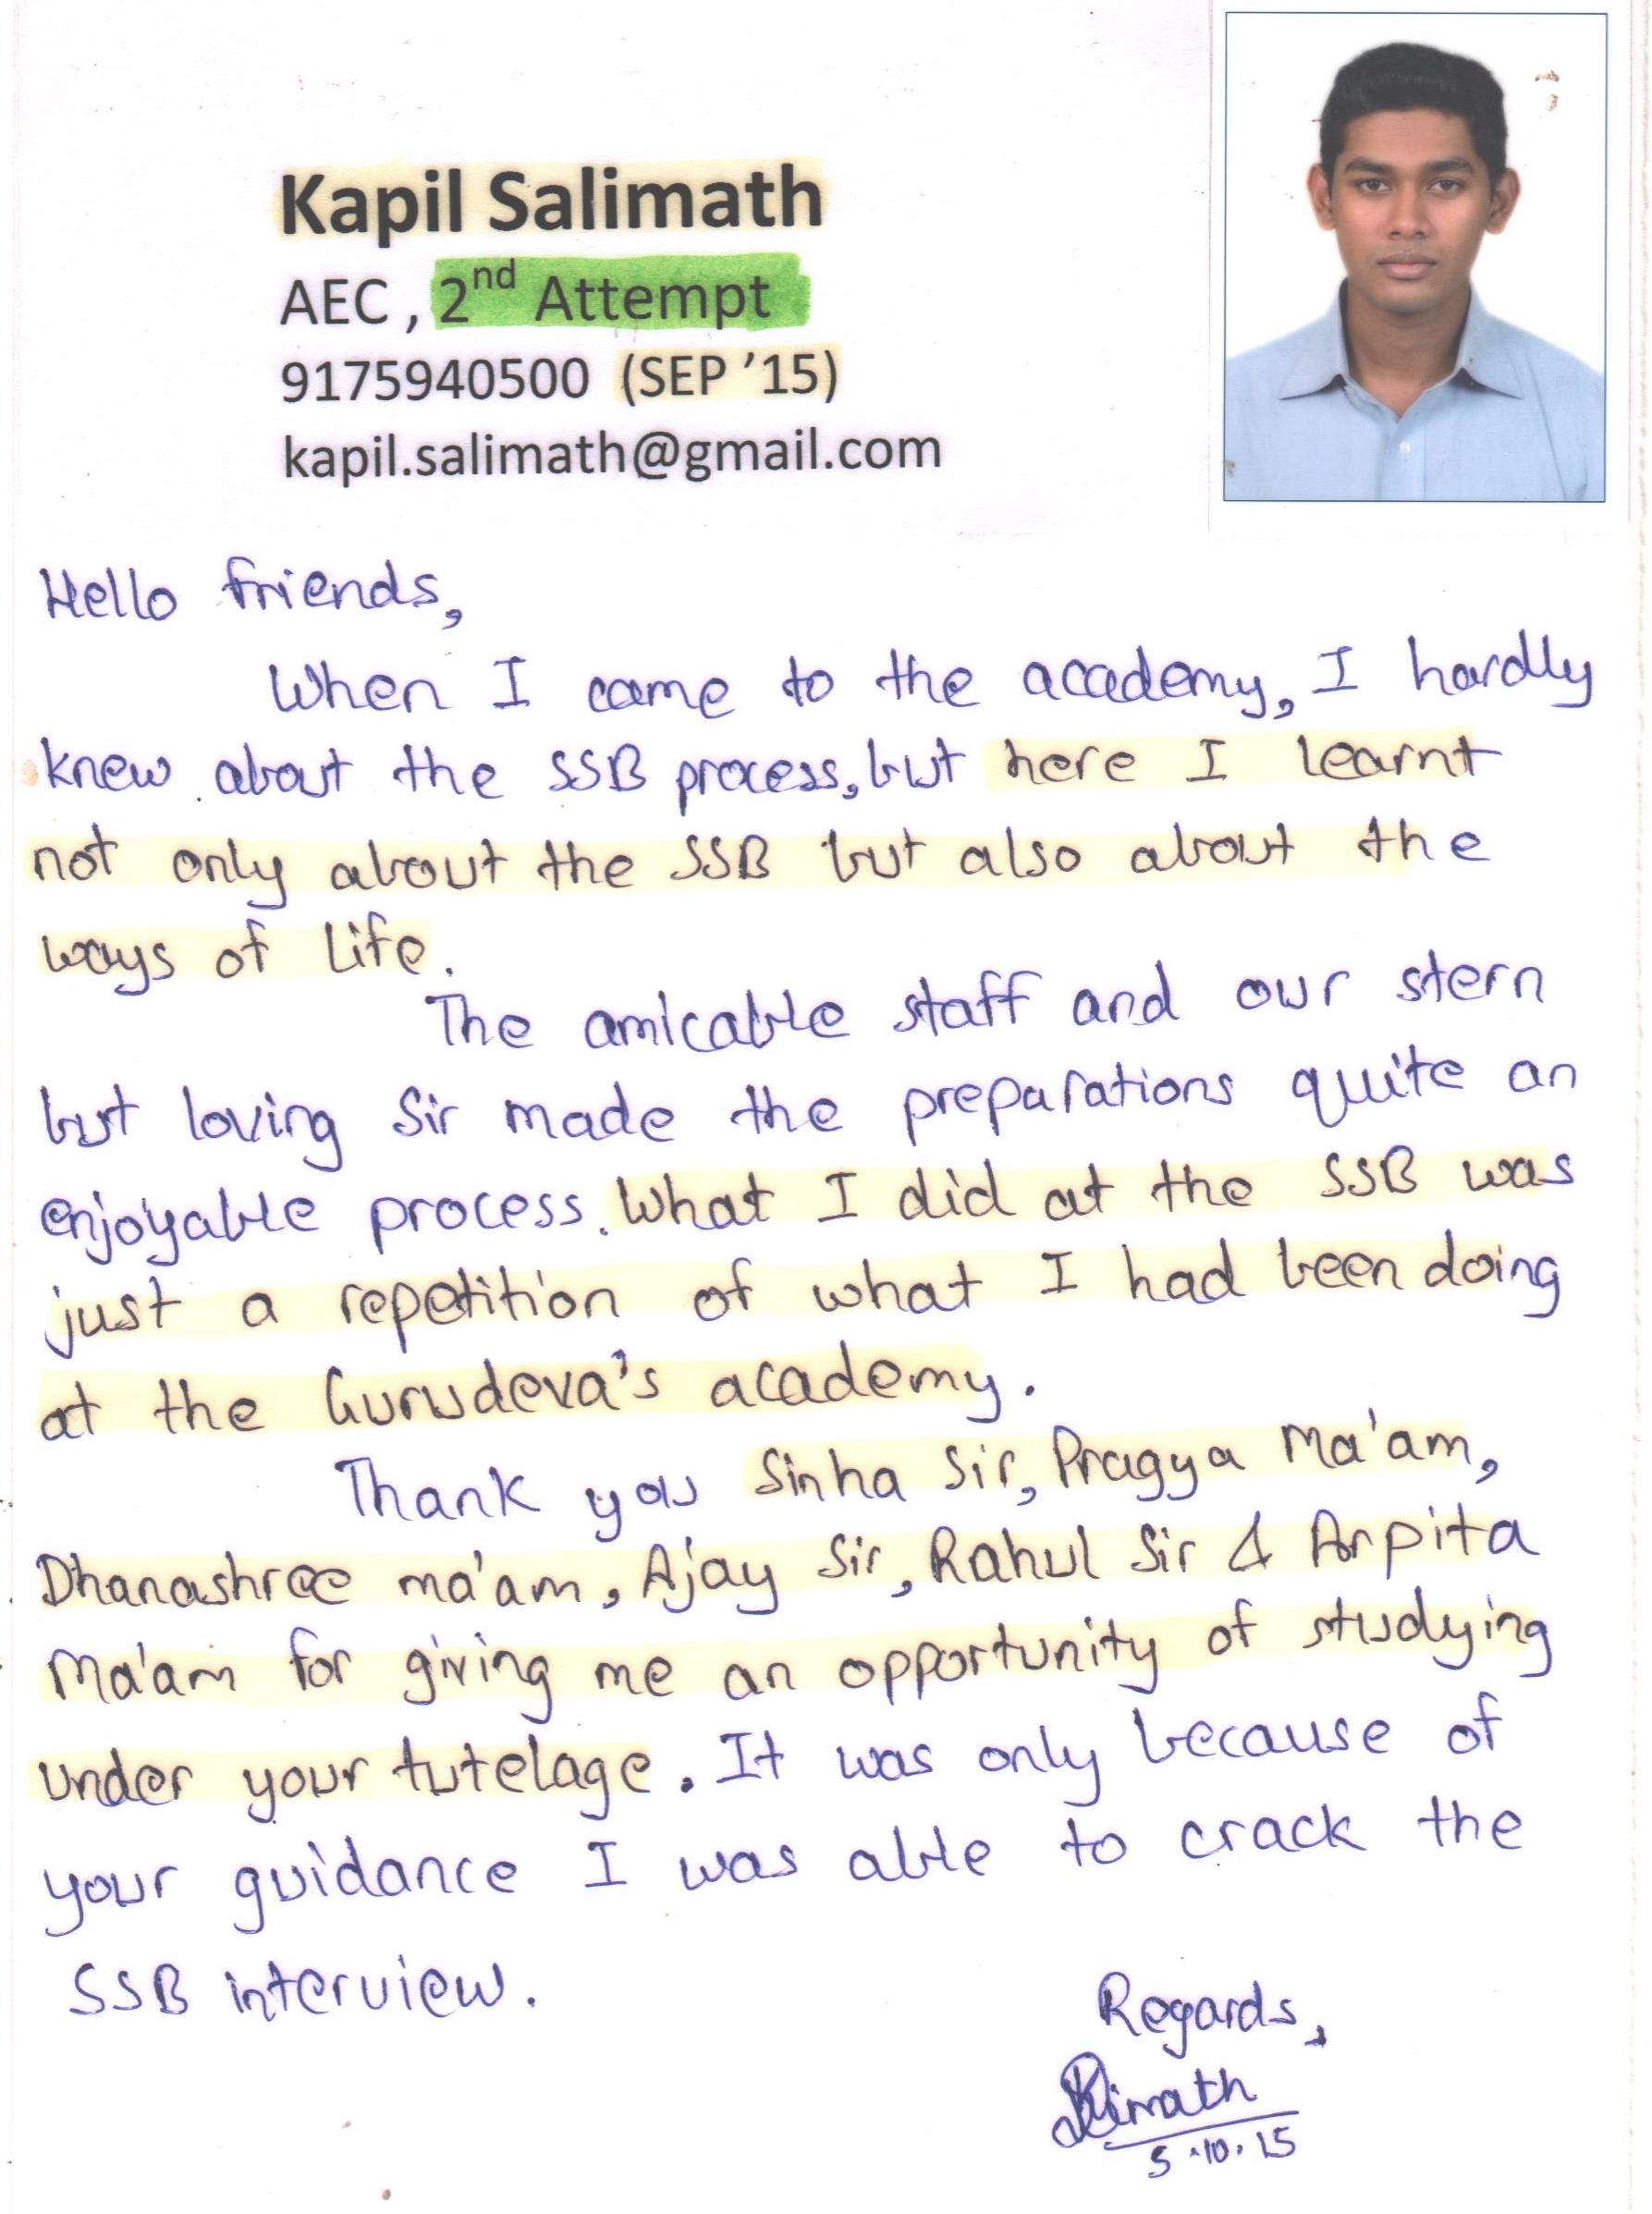 Kapil Salimath
AEC , 2nd Attempt
9175940500 (SEP ’15)
kapil.salimath@gmail.com
Hello friends,
When I came to the academy, I hardly
knew about the SSB process, but here I learnt
not only about the SSB but also about the
ways of life.
The amicable staff and our stern
but loving Sir made the preparations quite an
enjoyable process. What I did at the SSB was
just a repetition of what I had been doing
at the Gurudeva's academy.
Thank you Sinha Sir, Pragya Ma'am,
Dhanashree ma'am, Ajay Sir, Rahul Sir & Arpita
Ma'am for giving me an opportunity of studying
under your tutelage. It was only because of
your guidance I was able to crack the
SSB interview.
Regards,
5.10.15